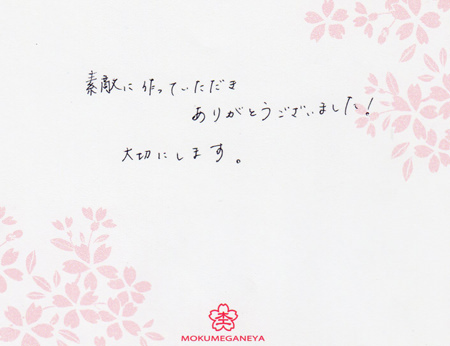 素敵に作っていただき
ありがとうございました!
大切にします。
MOKUMEGANEYA